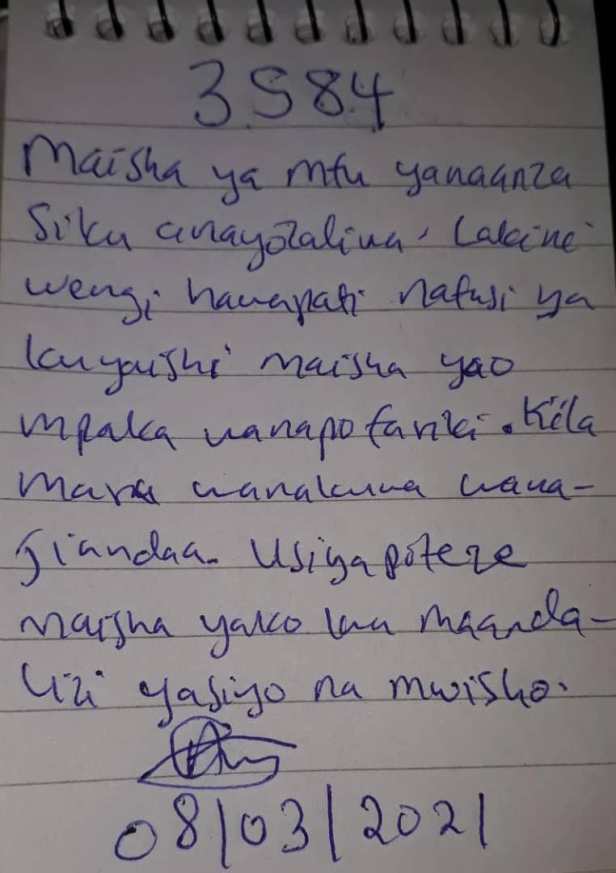 3584
Maisha ya mtu yanaanza
siku anayozaliwa. Lakini
wengi hawapati nafasi ya
kuyaishi maisha yao
mpaka wanapofariki. Kila
mara wanakuwa wana-
jiandaa. Usiyapoteze
maisha yako kwa maanda-
lizi yasiyo na mwisho.
08/03/2021